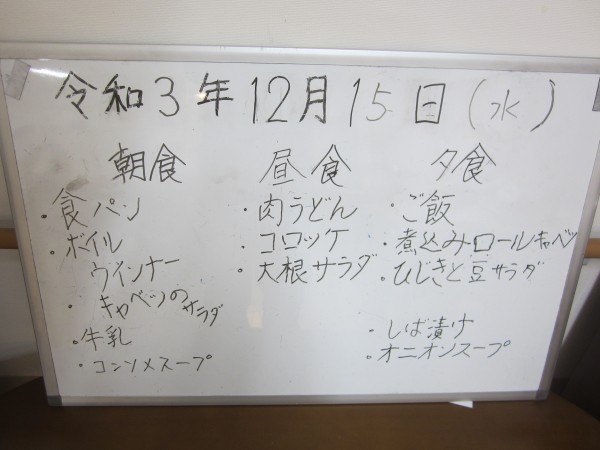 令和3年12月15日(水)
朝食
・食パン
・ボイル
ウインナー
・キャベツのサラダ
・牛乳
・コンソメスープ
昼食
・肉うどん
・コロッケ
・大根サラダ
夕食
・ご飯
・煮込みロールキャベツ
・ひじきと豆サラダ
・しば漬け
・オニオンスープ